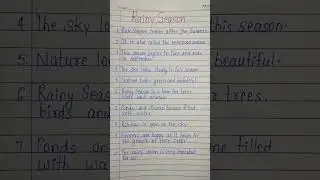 Rainy Season
1. Rain Season comes after the Summer.
2. It is also called the monsoon season.
3. This season begins in June and ends
in September
4. The sky looks cloudy in this season.
5. Nature looks green and beautiful.
6. Rainy Season is a boon for
trees, birds and animals
7. Ponds and Rivers become filled
with water
8. Rainbow is seen in the sky.
9. Farmers are happy as it helps in
the growth of their crops.
10. The rainy season is very important
for us.
4. The sky lo
5 Nature look
6 Rainy Sea
birds and
7 Ponds and
with wa
this season.
beautiful.
trees,
me filled